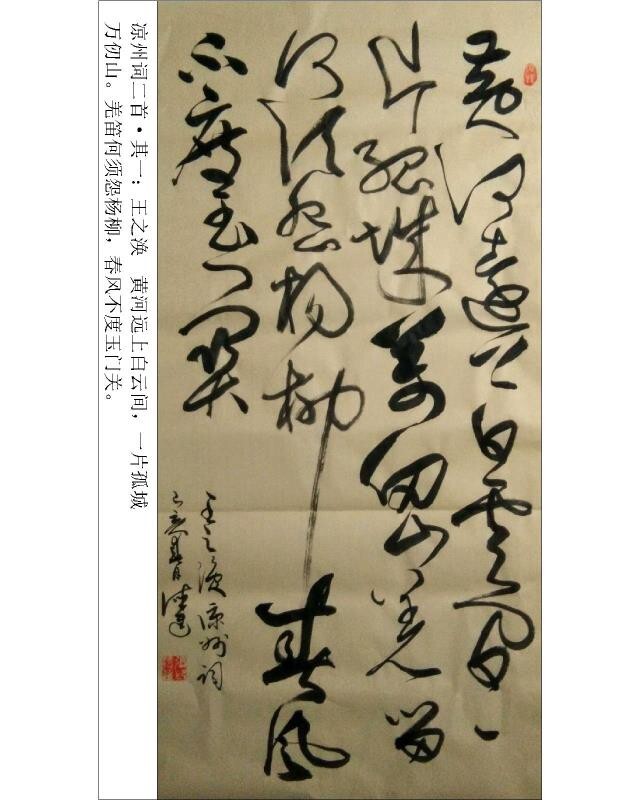 黄河遠上白雲間一
片孤城萬仞山羌笛
何須怨楊柳春風
不度玉門關
王之涣凉州詞
己亥春日
凉州词二首·其一：王之涣　黄河远上白云间，一片孤城
万仞山。羌笛何须怨杨柳，春风不度玉门关。